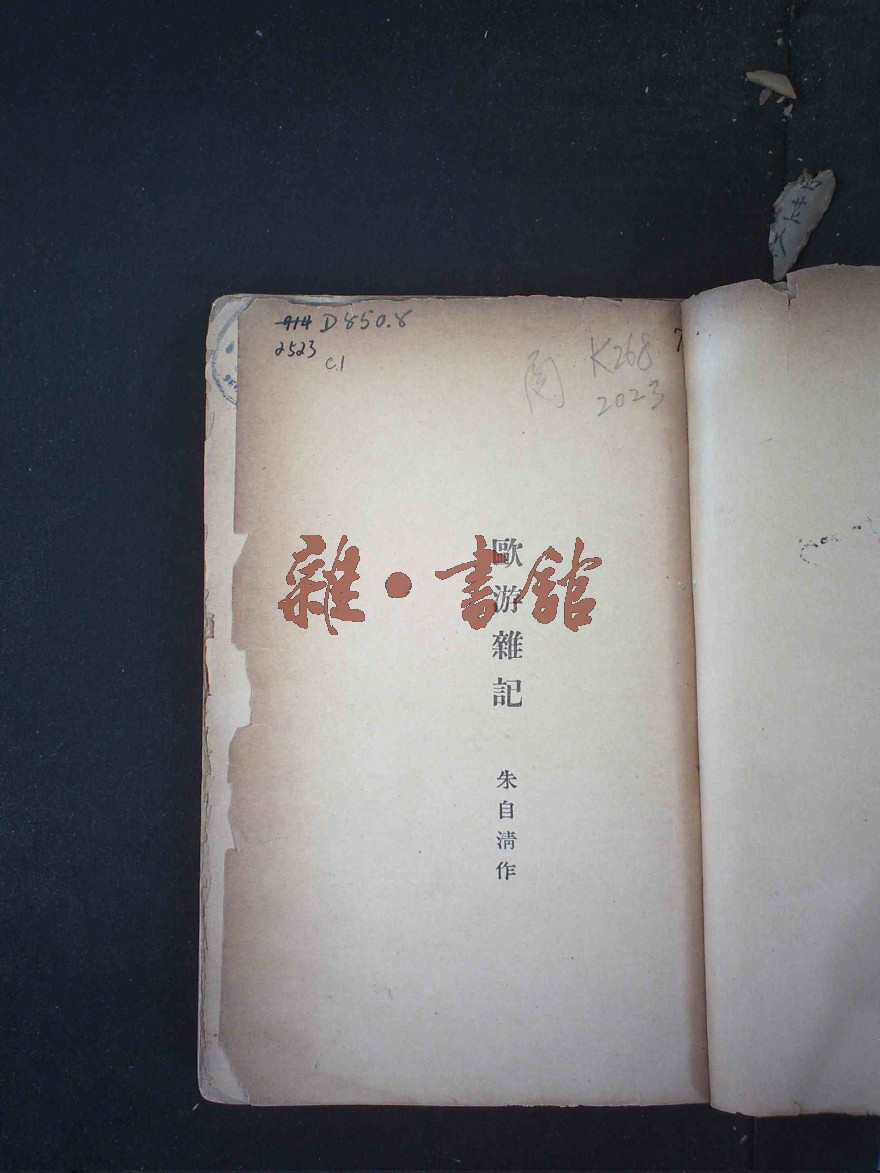 914 D850.8
2523
C.1
K268
2023
雜·書館
歐游雜記
朱自清作